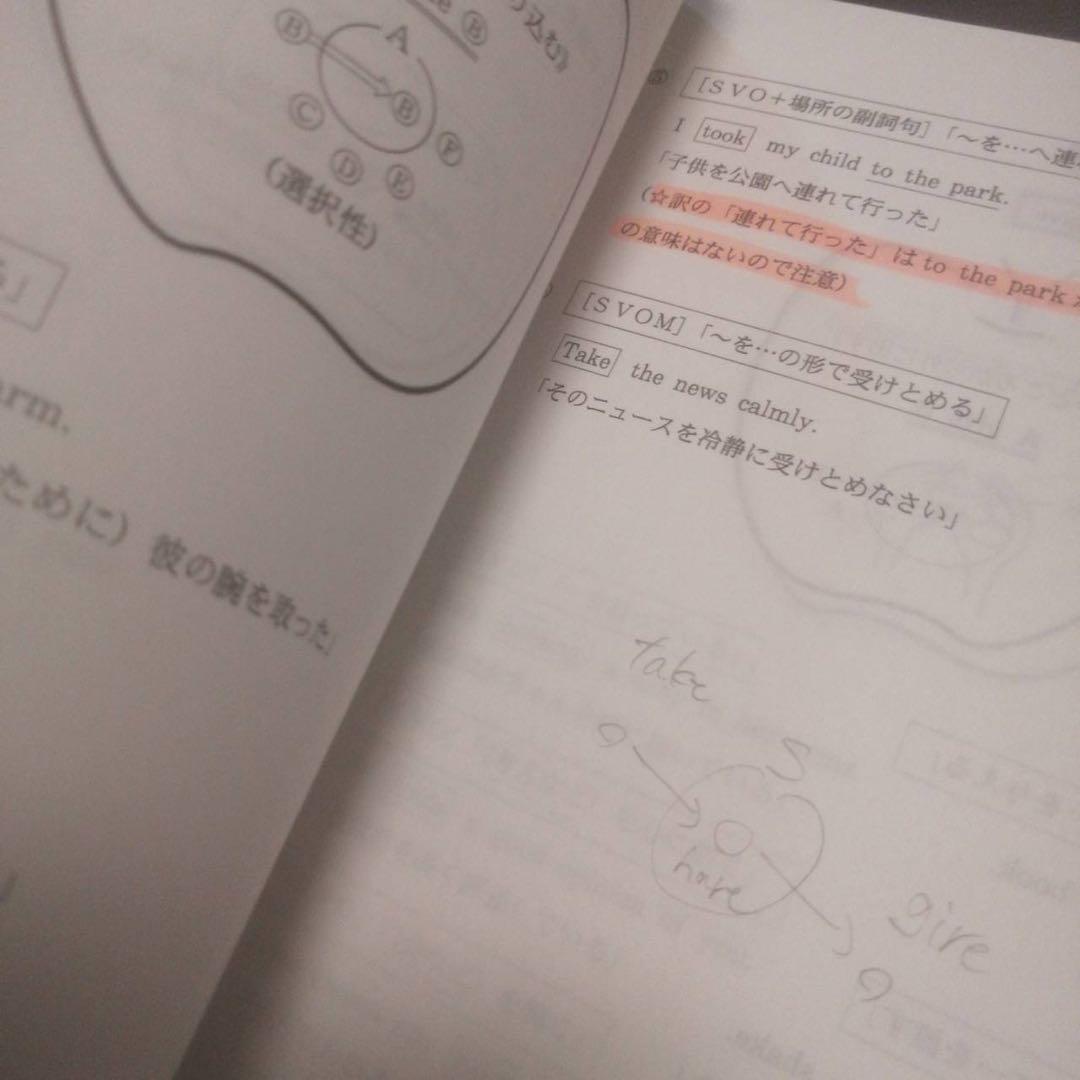 B
A
B
B
C
D
E
F
(選択性)
arm.
ために) 彼の腕を取った」
[SVO+場所の副詞句]「〜を…へ連
I took my child to the park.
「子供を公園へ連れて行った」
(☆訳の「連れて行った」は to the park
の意味はないので注意)
[SVOM]「〜を…の形で受けとめる」
Take the news calmly.
「そのニュースを冷静に受けとめなさい」
take
S
have
give